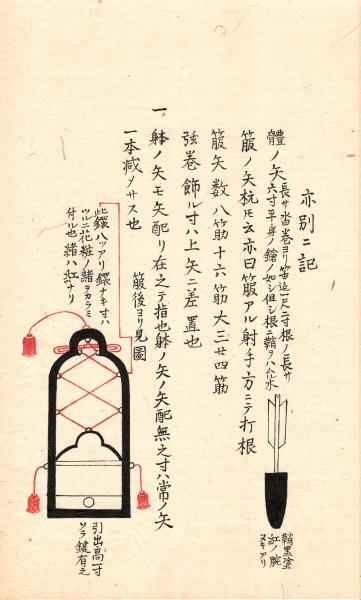 亦別ニ記
體ノ矢長サ沓巻ヨリ筈迠一尺二寸根ノ長サ
六寸平身ノ鎗ノ如シ但シ根ニ鞘ヲハム水
箙ノ矢杭モ云亦曰箙アル射手方ニテ打根
箙矢数八筋十六筋大三廿四筋
弦巻飾ルサハ上矢ニ差置也
一 躰ノ矢モ矢配リ在之テ指也躰ノ矢ノ矢配無之寸ハ常ノ矢
一本減ノサス也
箙後ヨリ見圖
此鐶八ツアリ鐶ナキ寸ハ
ツルニ花粧ノ緒ヲカラミ
付ル也緒ハ紅ナリ
鞘黒塗
紅ノ腕
ヌキアリ
引出高一寸
ソラ鍵有之